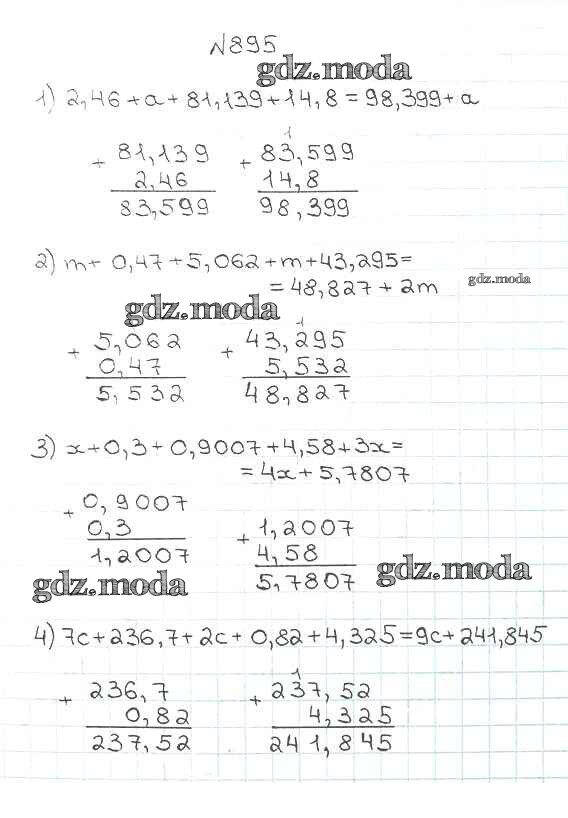 №895
gdz.moda
1) 2,46 + a + 81,139 + 14,8 = 98,399 + a
1
+ 81,139 + 83,599
2,46 14,8
83,599 98,399
2) m + 0,47 + 5,062 + m + 43,295 =
= 48,827 + 2m
gdz.moda
gdz.moda
1
+ 5,062 + 43,295
0,47 5,532
5,532 48,827
3) x + 0,3 + 0,9007 + 4,58 + 3x =
= 4x + 5,7807
+ 0,9007
0,3 + 1,2007
1,2007 4,58
gdz.moda 5,7807 gdz.moda
4) 7c + 236,7 + 2c + 0,82 + 4,325 = 9c + 241,845
1
+ 236,7 + 237,52
0,82 4,325
237,52 241,845